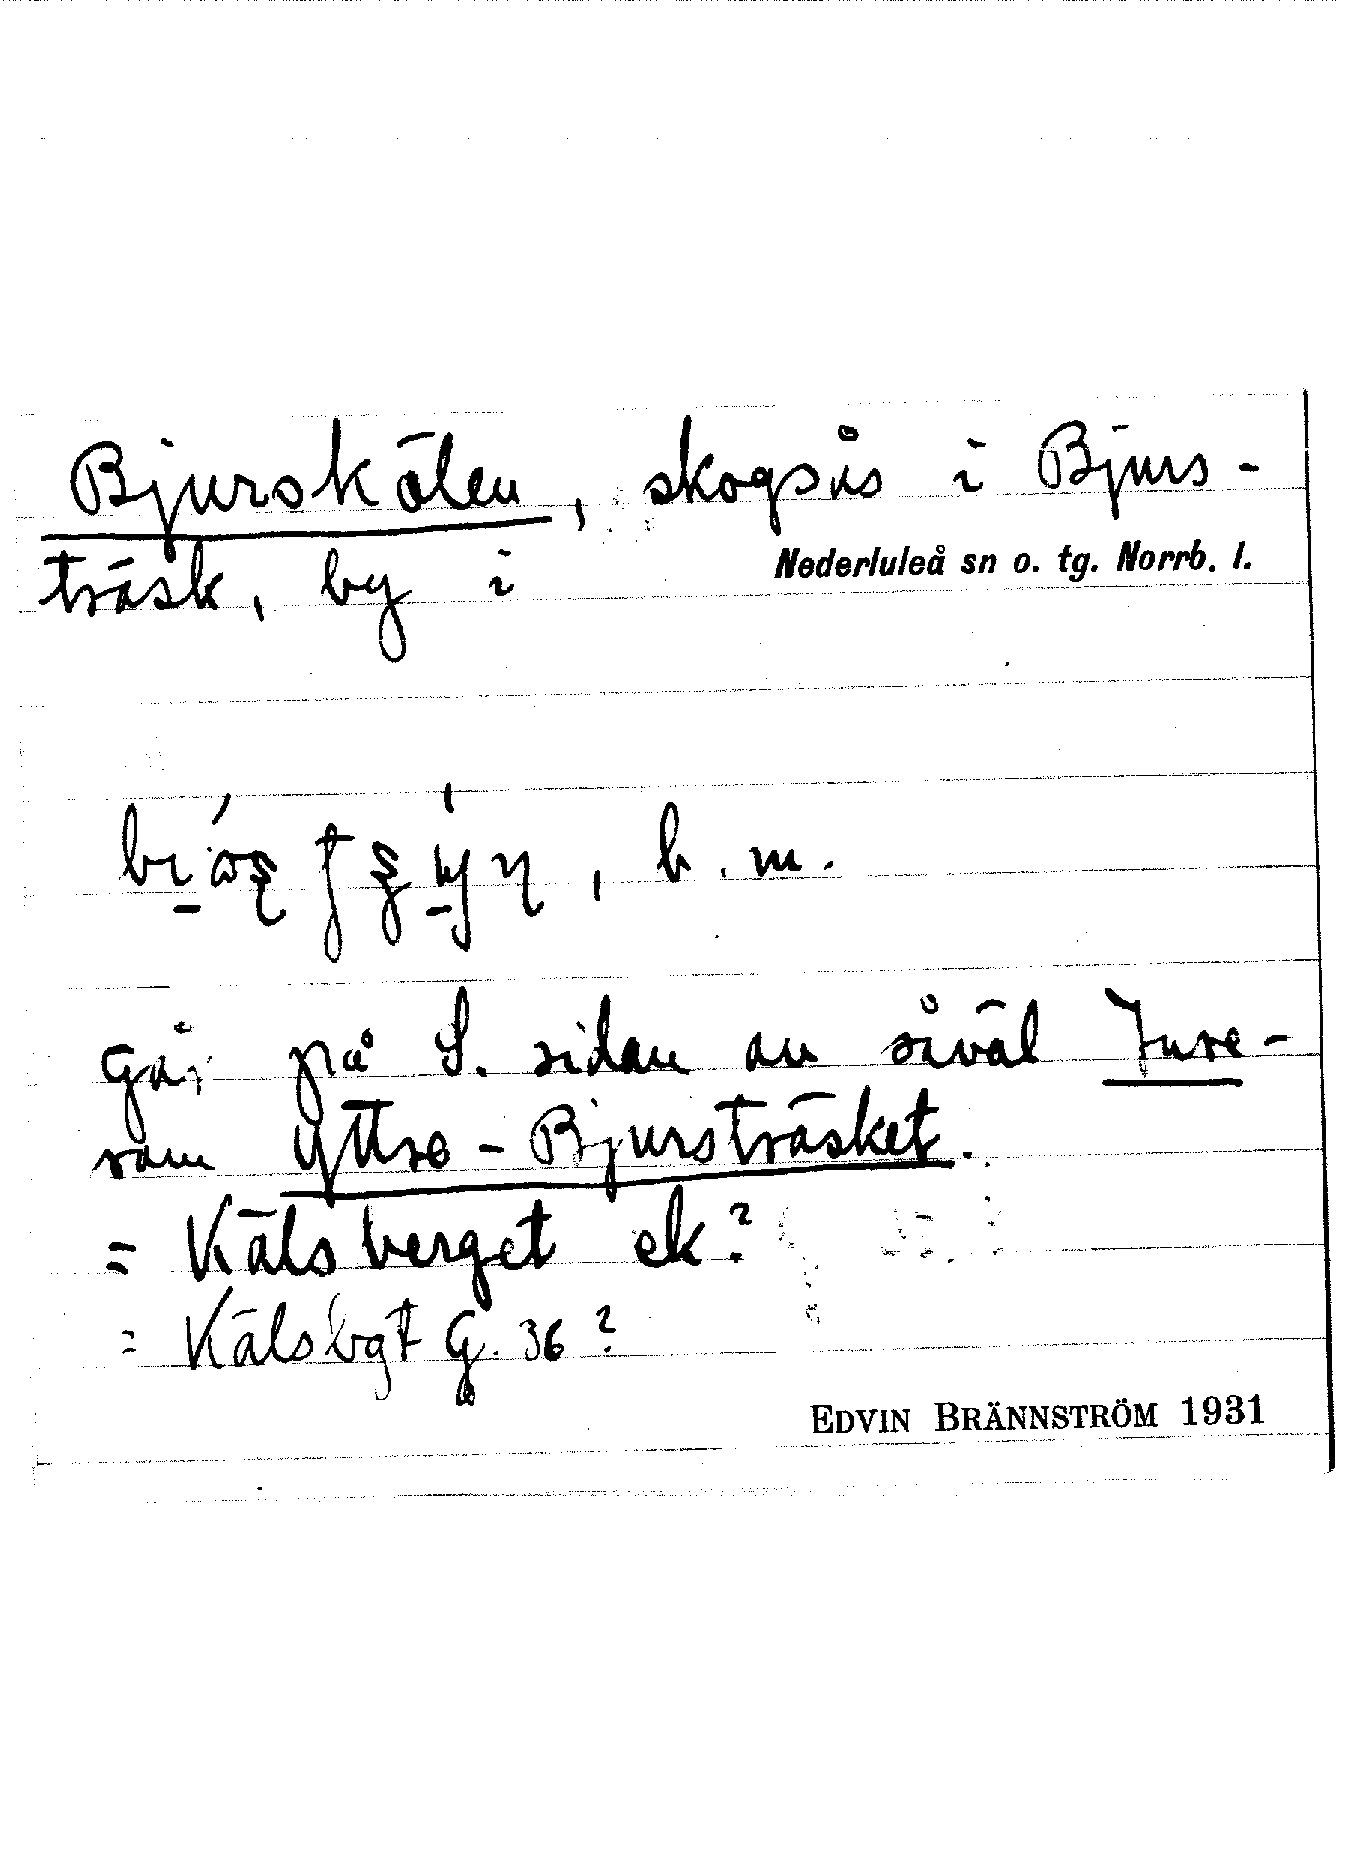 Bjurskölen, skogsås i Bjurs-
träsk, by i Nederluleå sn o. tg. Norrb. l.
b. m.
går på S. sidan av såväl Inre-
som Yttre-Bjursträsket.
= Kälsberget ek?
= Kälsbgt G. 36?
EDVIN BRÄNNSTRÖM 1931